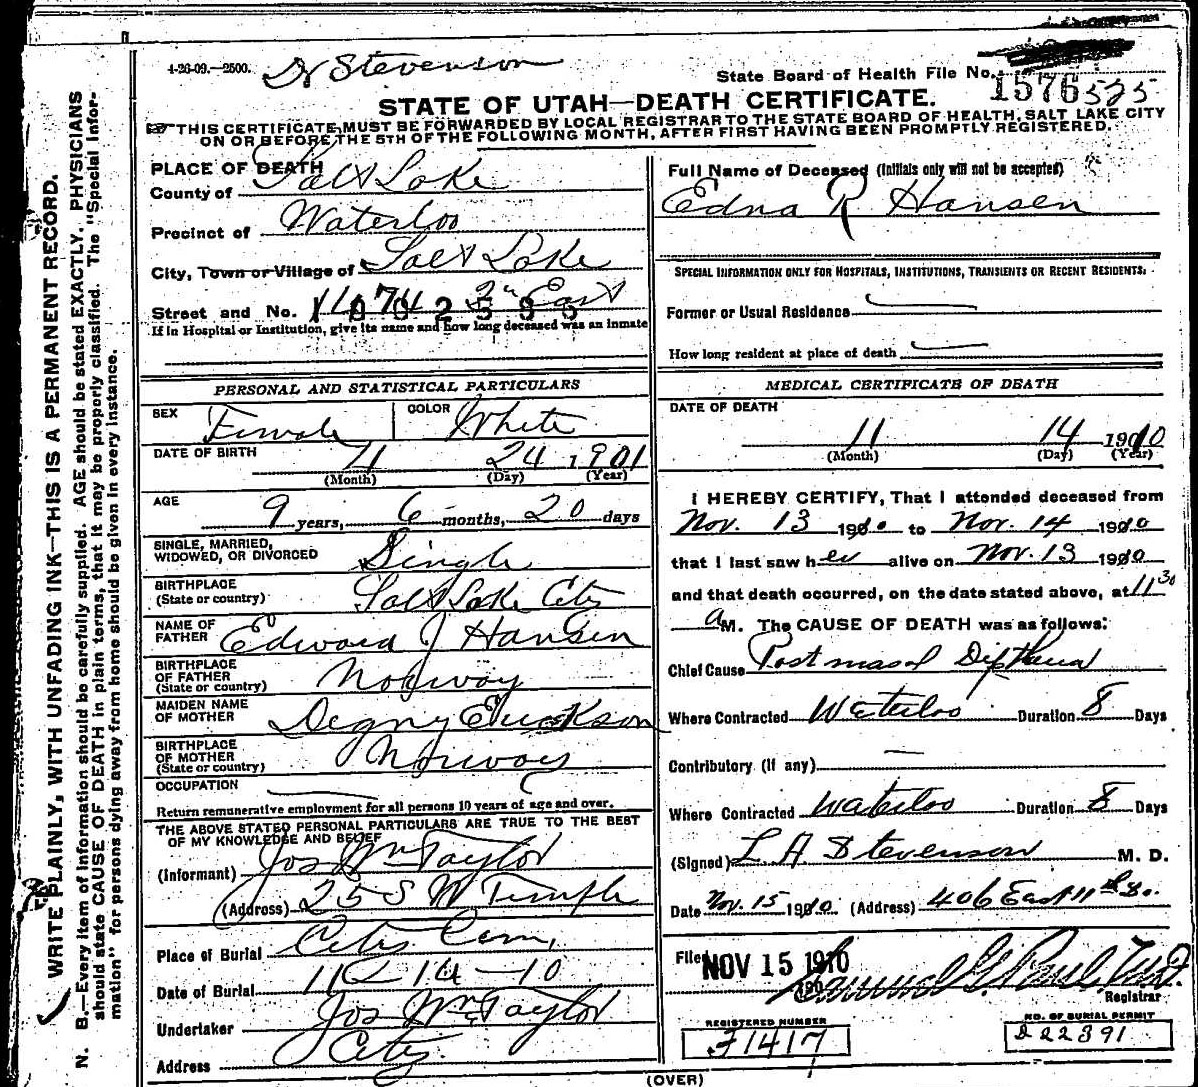 4-26-09.—2500.
Dr Stevenson
State Board of Health File No. 1576 525
STATE OF UTAH—DEATH CERTIFICATE.
THIS CERTIFICATE MUST BE FORWARDED BY LOCAL REGISTRAR TO THE STATE BOARD OF HEALTH, SALT LAKE CITY
ON OR BEFORE THE 5TH OF THE FOLLOWING MONTH, AFTER FIRST HAVING BEEN PROMPTLY REGISTERED.
WRITE PLAINLY, WITH UNFADING INK—THIS IS A PERMANENT RECORD.
N. B.—Every item of information should be carefully supplied. AGE should be stated EXACTLY. PHYSICIANS
should state CAUSE OF DEATH in plain terms, that it may be properly classified. The "Special Infor-
mation" for persons dying away from home should be given in every instance.
PLACE OF DEATH
County of Salt Lake
Precinct of Waterloo
City, Town or Village of Salt Lake
Street and No. East
If in Hospital or Institution, give its name and how long deceased was an inmate
PERSONAL AND STATISTICAL PARTICULARS
SEX Female COLOR White
DATE OF BIRTH 11 24 1901
(Month) (Day) (Year)
AGE
9 years, 6 months, 20 days
SINGLE, MARRIED,
WIDOWED, OR DIVORCED Single
BIRTHPLACE
(State or country) Salt Lake City
NAME OF
FATHER Edward J Hansen
BIRTHPLACE
OF FATHER
(State or country) Norway
MAIDEN NAME
OF MOTHER Erickson
BIRTHPLACE
OF MOTHER
(State or country) Norway
OCCUPATION
Return remunerative employment for all persons 10 years of age and over.
THE ABOVE STATED PERSONAL PARTICULARS ARE TRUE TO THE BEST
OF MY KNOWLEDGE AND BELIEF
(Informant) Jos Wm Taylor
(Address) 25 S W Temple
Place of Burial City Cem,
Date of Burial 11 - 14 - 10
Undertaker Jos Wm Taylor
Address City
Full Name of Deceased (Initials only will not be accepted)
Edna R Hansen
SPECIAL INFORMATION ONLY FOR HOSPITALS, INSTITUTIONS, TRANSIENTS OR RECENT RESIDENTS.
Former or Usual Residence
How long resident at place of death
MEDICAL CERTIFICATE OF DEATH
DATE OF DEATH
11 14 1910
(Month) (Day) (Year)
I HEREBY CERTIFY, That I attended deceased from
Nov. 13 1910 to Nov. 14 1910
that I last saw her alive on Nov. 13 1910
and that death occurred, on the date stated above, at 11 30
a M. The CAUSE OF DEATH was as follows:
Chief Cause Post nasal Diptheria
Where Contracted Waterloo Duration 8 Days
Contributory (if any)
Where Contracted Waterloo Duration 8 Days
(Signed) L. A Stevenson M. D.
Date Nov. 15 1910 (Address) 406 East 11th So.
Filed NOV 15 1910
Registrar
REGISTERED NUMBER
J1417
NO. OF BURIAL PERMIT
D22391
(OVER)